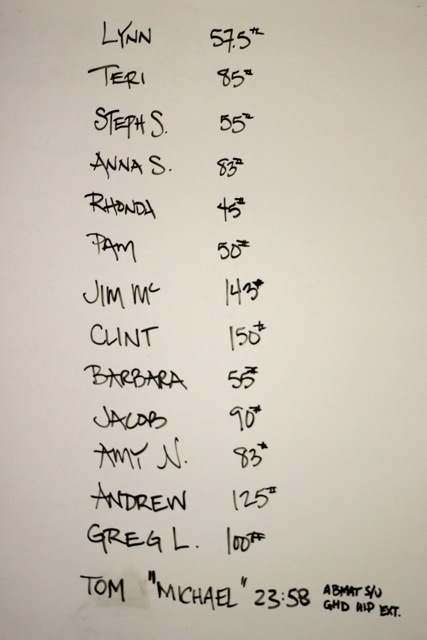 LYNN 57.5#
TERI 85#
STEPH S. 55#
ANNA S. 83#
RHONDA 45#
PAM 50#
JIM Mc 143#
CLINT 150#
BARBARA 55#
JACOB 90#
AMY N. 83#
ANDREW 125#
GREG L. 100#
TOM "MICHAEL" 23:58 ABMAT S/U
GHD HIP EXT.